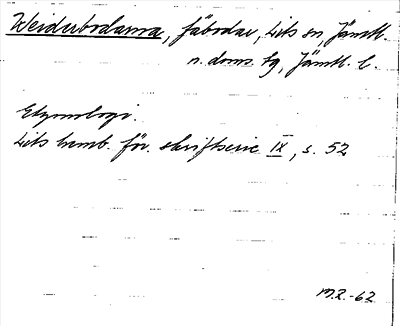 Weiderbodarna, fäbodar, Lits sn, Jämtl.
n. doms. tg, Jämtl. l.
Etymologi.
Lits hemb. för. skriftserie IX, s. 52
M.R. -62